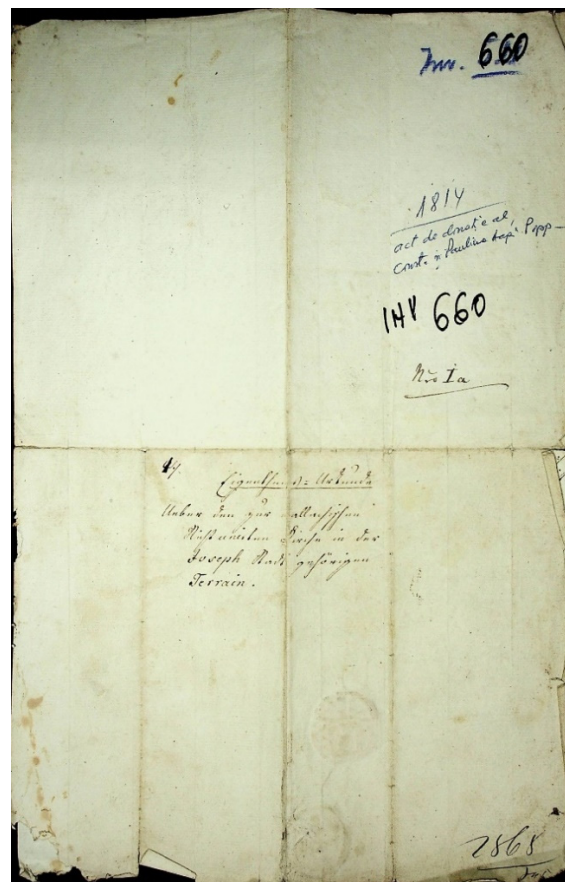 Inv. 660
1814
act de donație al
Const. și Paulina Popp
INV 660
Nro Ia
Eigenthums-Urkunde
Ueber den zur wallachischen
Kirche in der
Joseph Stadt gehörigen
Terrain.
2868